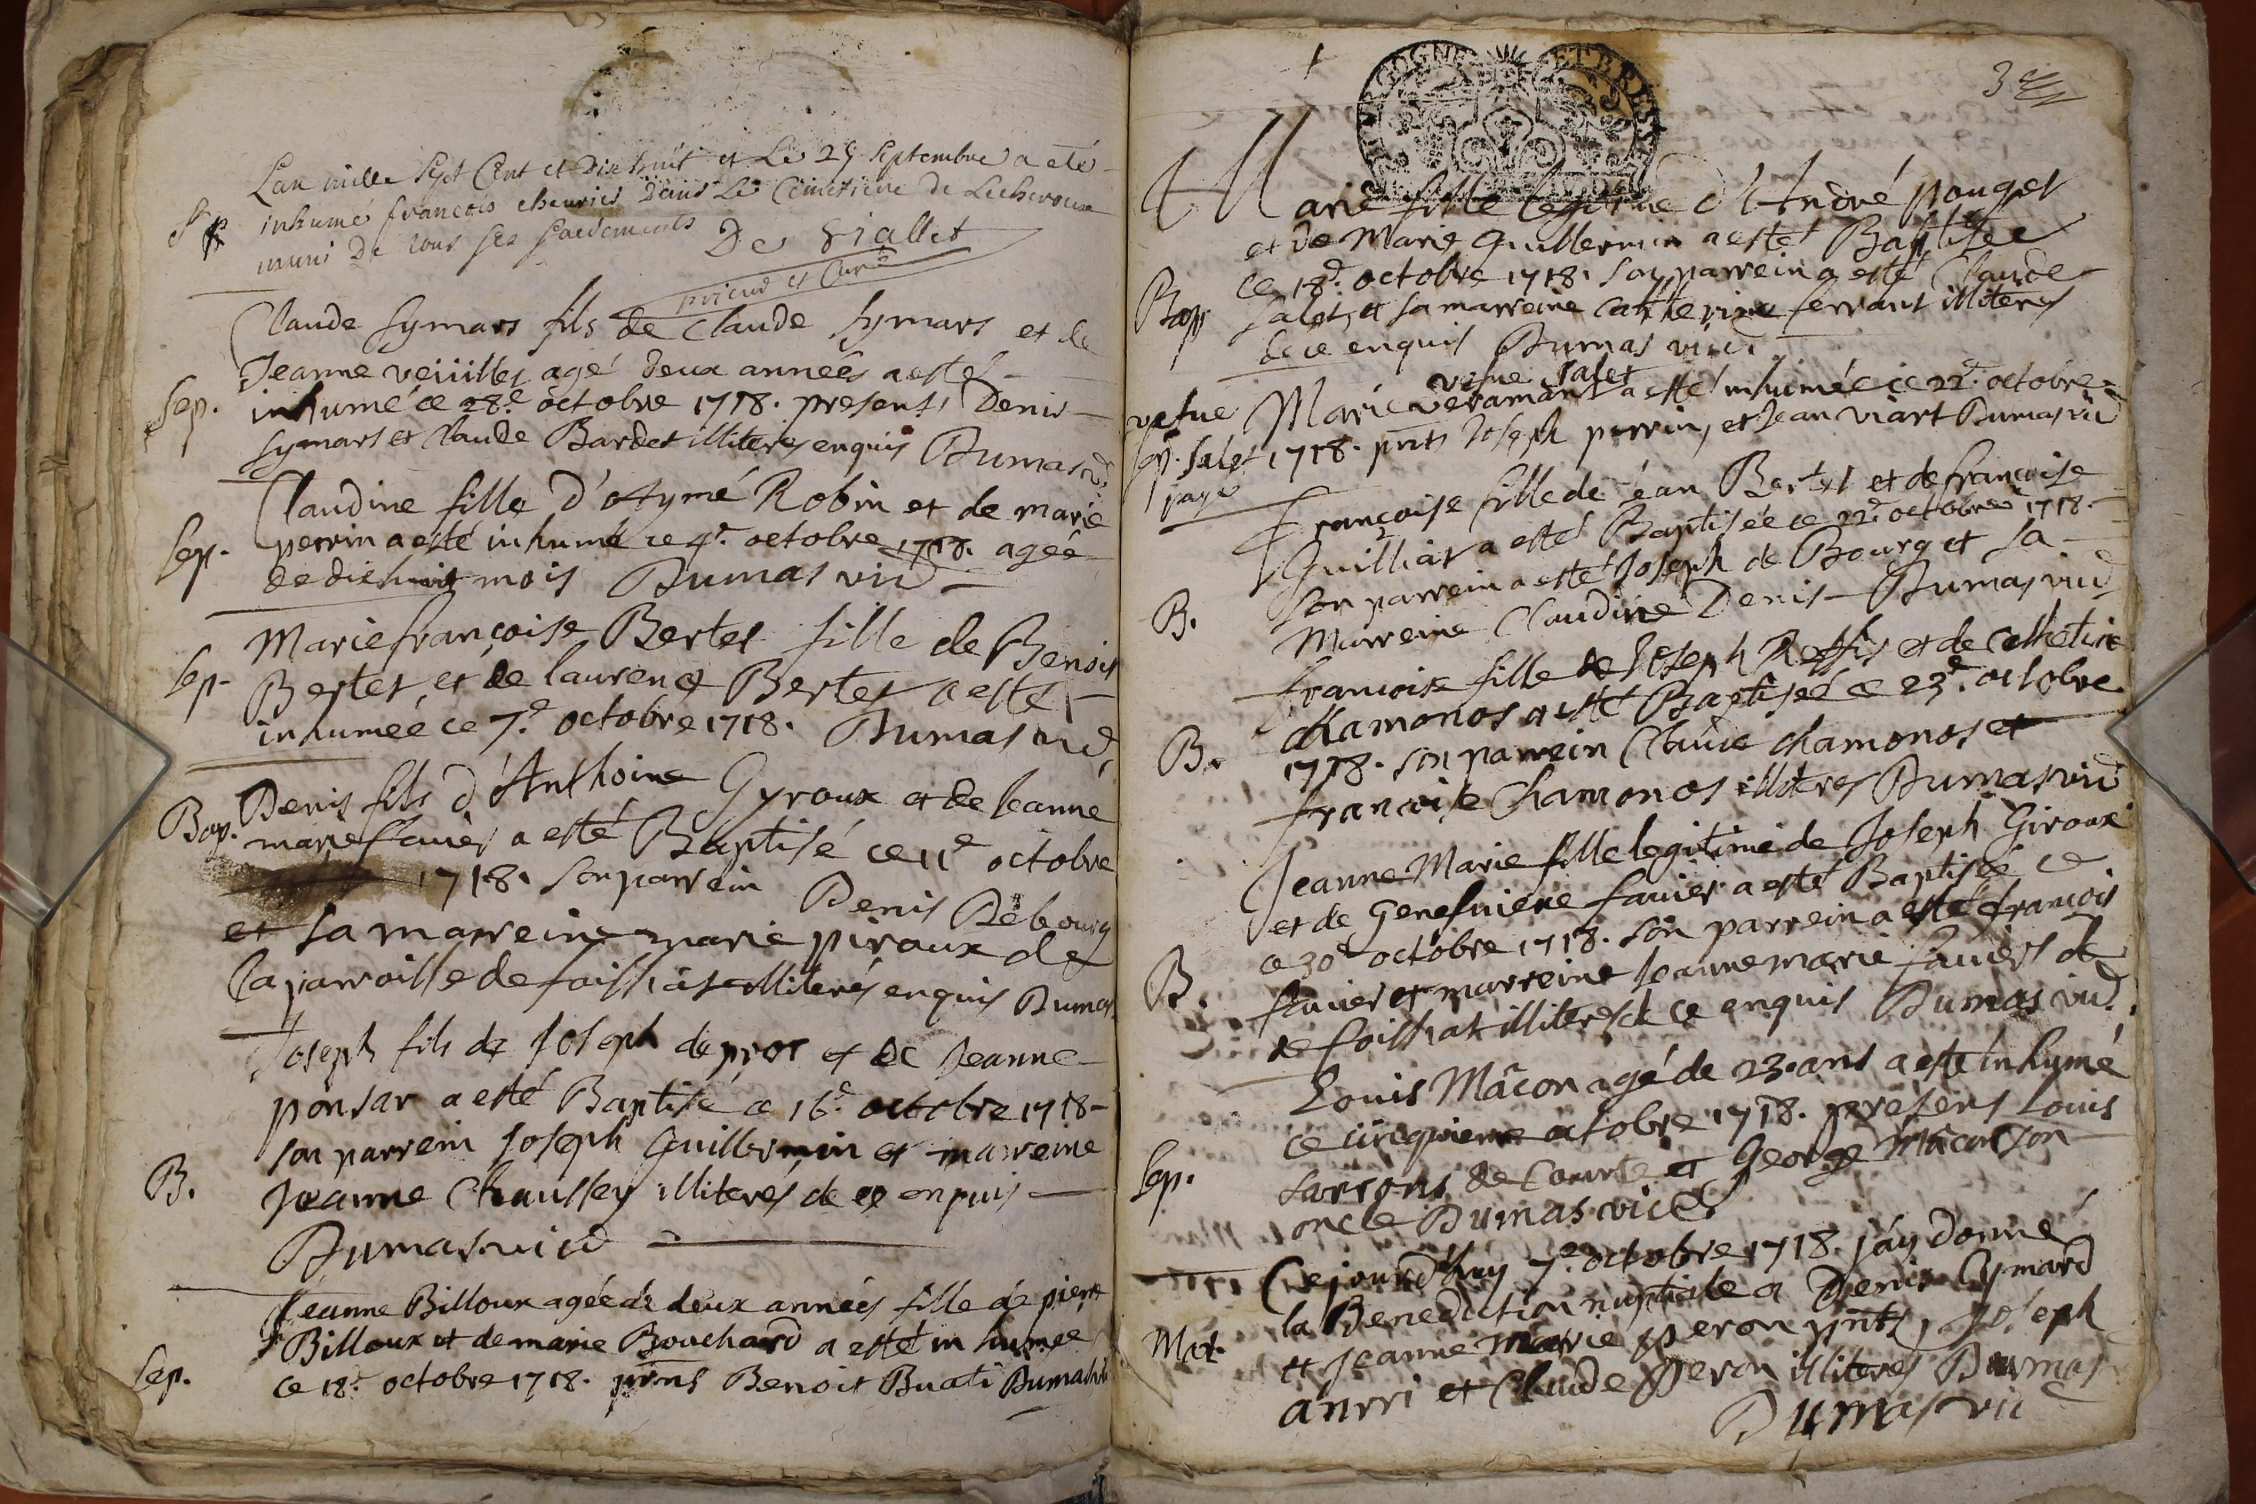 Lan mille Sept Cent et Dix huit et Le 29 Septembre a eté
Sep inhumé francois cheurier Dans Le Cimetiere De Lecheroux
muni De tous ses sacdements De Siallet
prieur et Curé
Claude Symars fils de Claude Symars et de
Jeanne veüilles agé deux années a esté
Sep. inhumé ce 28.e octobre 1718. presents Denis
Symars et Claude Bardet illiteres enquis Dumas
Claudine fille d'Aymé Robin et de marie
Sep. perrin a esté inhumé ce 4.e octobre 1718. agée
de dixhuit mois Dumas vic
Marie françoise Bertet fille de Benoit
Sep. Bertet et de laurence Bertet a esté
inhumée ce 7.e octobre 1718. Dumas vic
Bap. Denis fils d'Anthoine Gyroux et de Jeanne
marie favier a esté Baptisé ce 11e octobre
1718. son parrein Denis Debourg
et sa marreine marie piroux de
la parroisse de foissiat illiterés enquis Dumas
Joseph fils de Joseph depros et de Jeanne
ponsar a esté Baptisé ce 16.e octobre 1718
son parrein Joseph Guillermin et marreine
B. Jeanne Chaussey illiterés de ce enquis
Dumas vic
Jeanne Billoux agée de deux années fille de pierre
Billoux et de marie Bouchard a esté inhumée
Sep. ce 18.e octobre 1718. pnts Benoit Buati Dumas
BOURGOGNE ET BRESSE
3
Marie fille legitime d'André pouget
et de Marie Guillermin a esté Baptisée
ce 18.e octobre 1718. son parrein a esté Claude
Bap Salet, et sa marreine Catherine ferrant illiterés
de ce enquis Dumas vic.
vefue Salet
vefue Marie veramant a esté inhumée ce 22.e octobre
Sep. Salet 1718. pnts Joseph perrin, et Jean viart Dumas vic
payé
françoise fille de jean Bertet et de françoise
Guilliat a esté Baptisée ce 22.e octobre 1718.
son parrein a esté Joseph de Bourg et sa
B. Marreine Claudine Denis Dumas vic
francoise fille de Joseph Reffis et de Catherine
chamonos a esté Baptisée ce 23.e octobre
B. 1718. son parrein Claude chamonos et
francoise Chamonos illiteres Dumas vic
Jeanne Marie fille legitime de Joseph Giroux
et de Genefuieue fauier a esté Baptisée
ce 30e octobre 1718. son parrein a esté françois
B. fauier et marreine Jeanne marie fauiers de
de foissiat illiteres de ce enquis Dumas vic.
Louis Mâcon agé de 23. ans a esté inhumé
ce cinquieme octobre 1718. presens Louis
Sep. Sarrons de Courte et George Mâcon son
oncle Dumas vic
Cejourd'huy 7.e octobre 1718. j'ay donné
la Benediction nuptiale a Denis Symard
Mar. et Jeanne Marie peron pnts, Joseph
anrri et Claude peron illiteres Dumas
Dumas vic